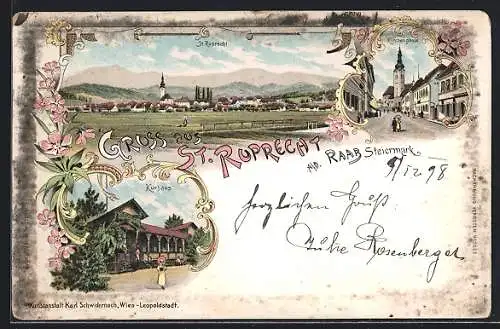 St. Ruprecht
Kirchengasse
Gruss aus
St. Ruprecht
a/d. Raab Steiermark
9/IX 98
Kurhaus
herzlichen Gruß
Rosenberger
Kunstanstalt Karl Schwidernoch, Wien-Leopoldstadt.